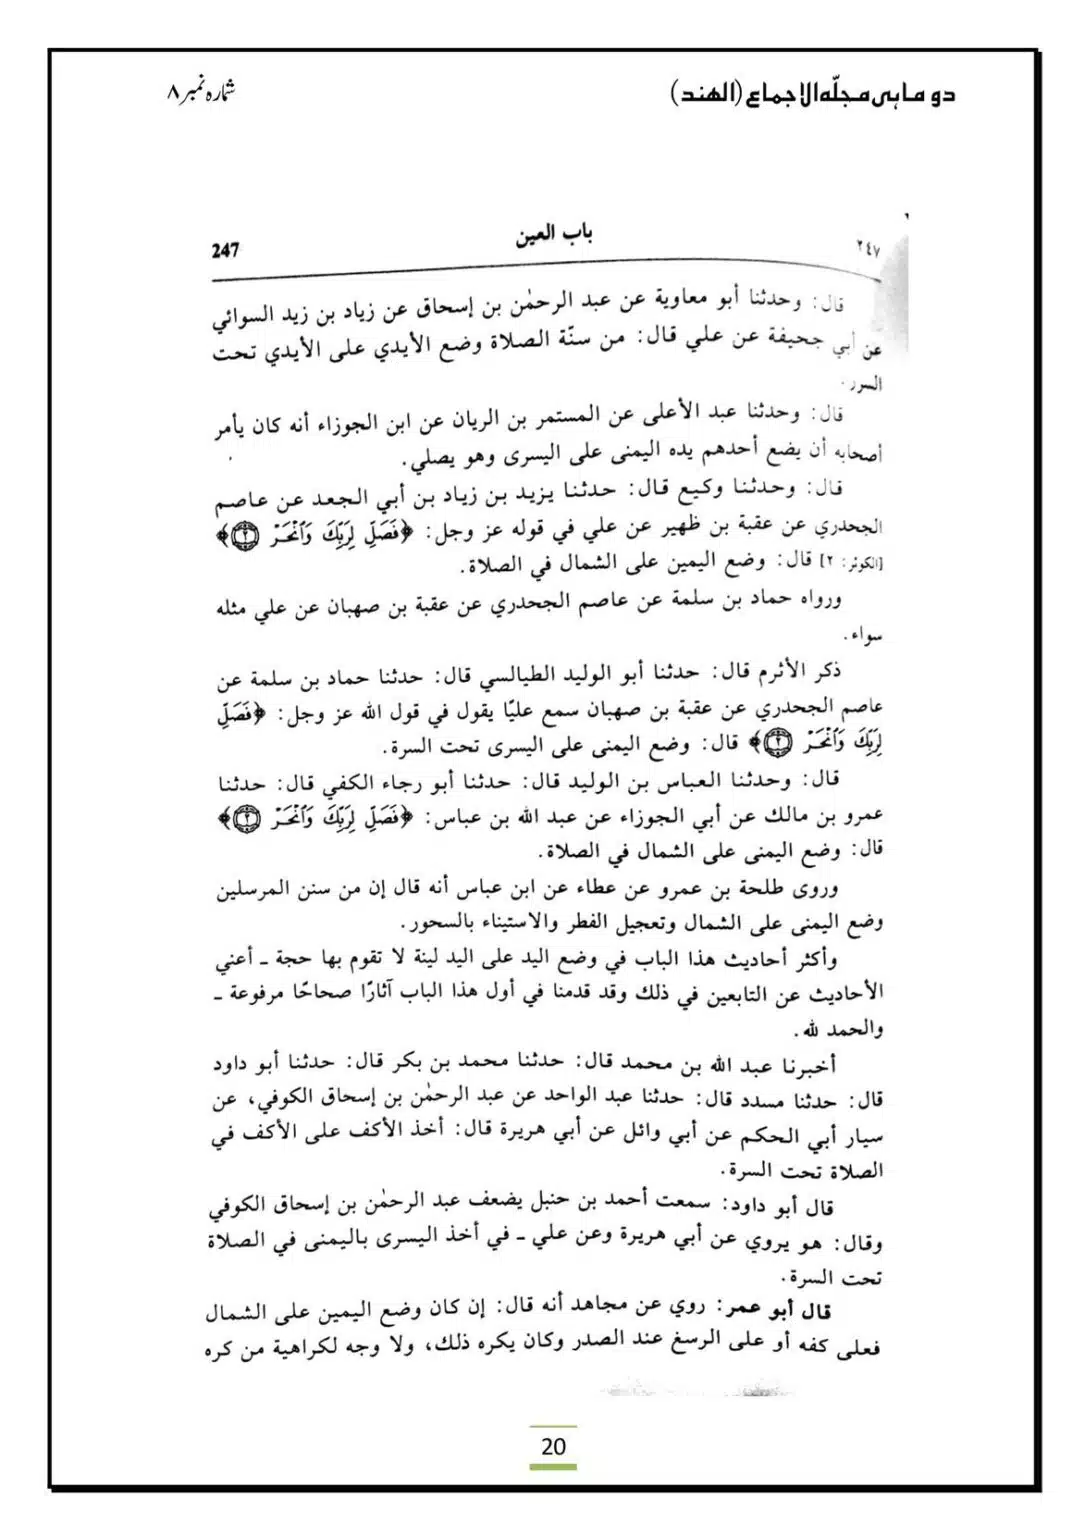 دو ماہی مجلّہ الاجماع (الھند)
شمارہ نمبر ۸
٢٤٧
باب العين
247
قال: وحدثنا أبو معاوية عن عبد الرحمٰن بن إسحاق عن زياد بن زيد السوائي
عن أبي جحيفة عن علي قال: من سنّة الصلاة وضع الأيدي على الأيدي تحت
السرر.
قال: وحدثنا عبد الأعلى عن المستمر بن الريان عن ابن الجوزاء أنه كان يأمر
أصحابه أن يضع أحدهم يده اليمنى على اليسرى وهو يصلي.
قال: وحدثنا وكيع قال: حدثنا يزيد بن زياد بن أبي الجعد عن عاصم
الجحدري عن عقبة بن ظهير عن علي في قوله عز وجل: ﴿فَصَلِّ لِرَبِّكَ وَٱنْحَرْ ۝٢﴾
[الكوثر: ٢] قال: وضع اليمين على الشمال في الصلاة.
ورواه حماد بن سلمة عن عاصم الجحدري عن عقبة بن صهبان عن علي مثله
سواء.
ذكر الأثرم قال: حدثنا أبو الوليد الطيالسي قال: حدثنا حماد بن سلمة عن
عاصم الجحدري عن عقبة بن صهبان سمع عليًا يقول في قول الله عز وجل: ﴿فَصَلِّ
لِرَبِّكَ وَٱنْحَرْ ۝٢﴾ قال: وضع اليمنى على اليسرى تحت السرة.
قال: وحدثنا العباس بن الوليد قال: حدثنا أبو رجاء الكفي قال: حدثنا
عمرو بن مالك عن أبي الجوزاء عن عبد الله بن عباس: ﴿فَصَلِّ لِرَبِّكَ وَٱنْحَرْ ۝٢﴾
قال: وضع اليمنى على الشمال في الصلاة.
وروى طلحة بن عمرو عن عطاء عن ابن عباس أنه قال إن من سنن المرسلين
وضع اليمنى على الشمال وتعجيل الفطر والاستيناء بالسحور.
وأكثر أحاديث هذا الباب في وضع اليد على اليد لينة لا تقوم بها حجة ـ أعني
الأحاديث عن التابعين في ذلك وقد قدمنا في أول هذا الباب آثارًا صحاحًا مرفوعة ـ
والحمد لله.
أخبرنا عبد الله بن محمد قال: حدثنا محمد بن بكر قال: حدثنا أبو داود
قال: حدثنا مسدد قال: حدثنا عبد الواحد عن عبد الرحمٰن بن إسحاق الكوفي، عن
سيار أبي الحكم عن أبي وائل عن أبي هريرة قال: أخذ الأكف على الأكف في
الصلاة تحت السرة.
قال أبو داود: سمعت أحمد بن حنبل يضعف عبد الرحمٰن بن إسحاق الكوفي
وقال: هو يروي عن أبي هريرة وعن علي ـ في أخذ اليسرى باليمنى في الصلاة
تحت السرة.
قال أبو عمر: روي عن مجاهد أنه قال: إن كان وضع اليمين على الشمال
فعلى كفه أو على الرسغ عند الصدر وكان يكره ذلك، ولا وجه لكراهية من كره
20